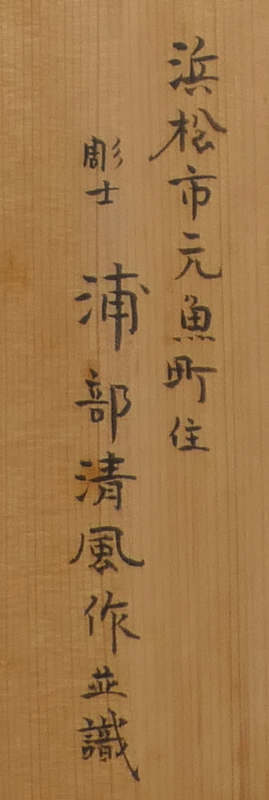 浜松市元魚町住
彫士 浦部清風作並識